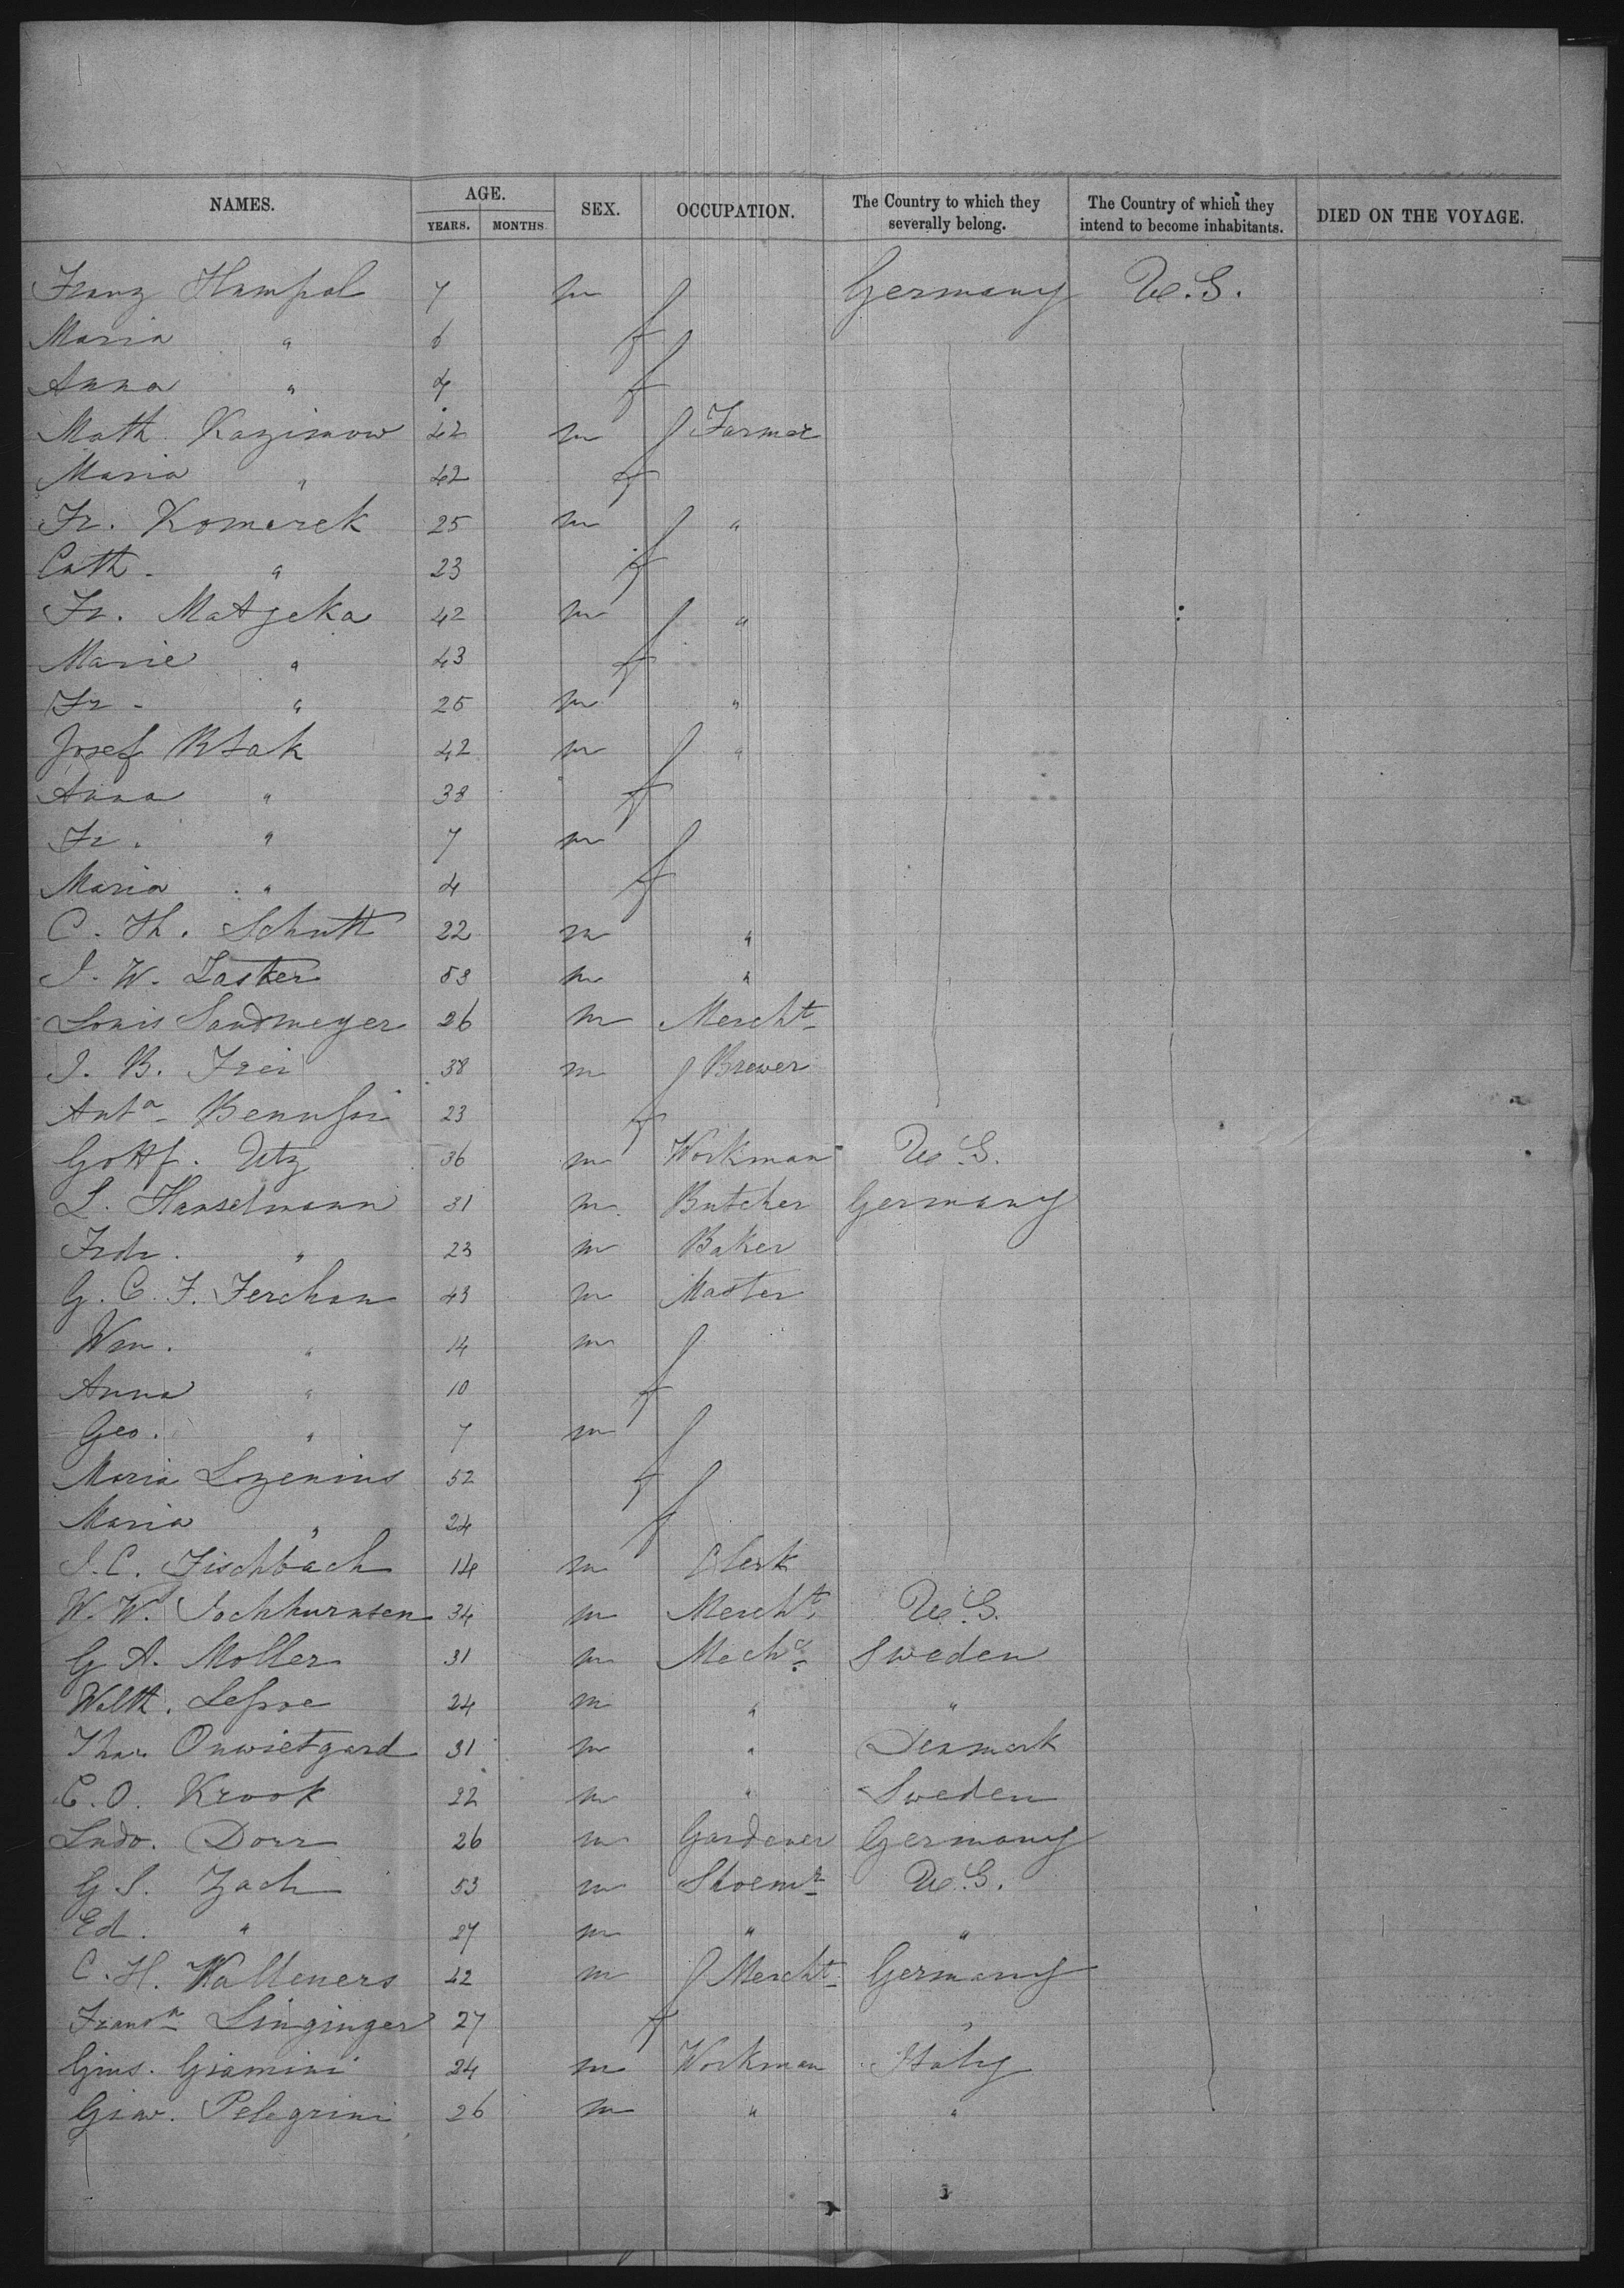 NAMES. AGE. SEX. OCCUPATION. The Country to which they severally belong. The Country of which they intend to become inhabitants. DIED ON THE VOYAGE.
YEARS. MONTHS
Franz Hampal 7 m Germany U.S.
Maria " 6 f
Anna " 4 f
Math. Kazimow 42 m Farmer
Maria " 42 f
Fr. Komarek 25 m "
Cath. " 23 f
Fr. Matzeka 42 m "
Marie " 43 f
Fr. " 25 m "
Josef Rtak 42 m "
Anna " 38 f
Fr. " 7 m
Maria " 4 f
C. Th. Schutt 22 m "
J. W. Lasker 53 m "
Louis Sandmeyer 26 m Mercht
J. B. Frei 38 m Brewer
Anta 23 f
Gottf. Utz 36 m Workman U.S.
L. Hanselmann 31 m Butcher Germany
Frdr. " 23 m Baker
G. C. F. Ferchan 43 m Master
Wm. " 14 m
Anna " 10 f
Geo. " 7 m
Maria Lozenius 52 f
Maria " 24 f
J. C. Fischbach 14 m Clerk
W. W. 34 m Mercht. U.S.
G. A. Moller 31 m Mechc Sweden
Walth. 24 m " "
31 m " Denmark
C. O. Krook 22 m " Sweden
Ludo. Dorr 26 m Gardener Germany
G. S. Zach 53 m Shoemr U.S.
Ed. " 27 m " "
C. H. Walleners 42 m Mercht Germany
Singinger 27 f "
Gius. Giamini 24 m Workman Italy
Giov. Pelegrini 26 m " "